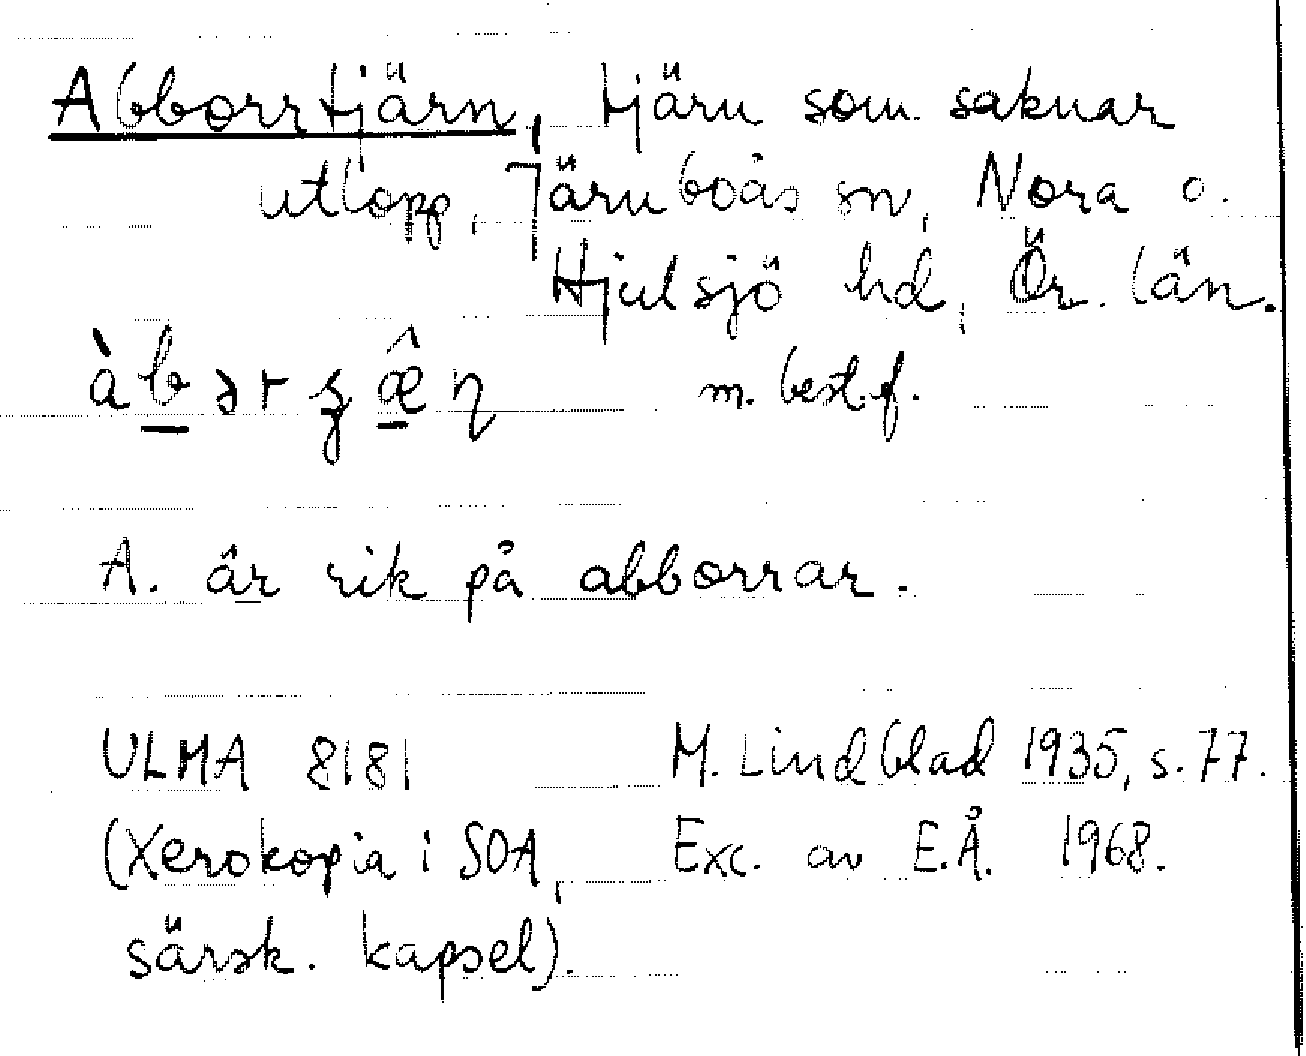 Abborrtjärn, tjärn som saknar
utlopp, Järnboås sn, Nora o.
Hjulsjö hd, Ör. län.
m. best.f.
A. är rik på abborrar.
ULMA 8181 M. Lindblad 1935, s. 77.
(Xerokopia i SOA, Exc. av E.Å. 1968.
särsk. kapsel).